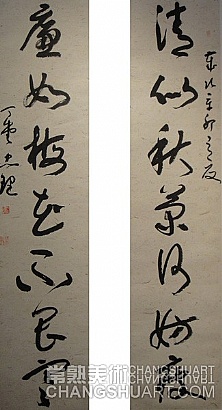 清似秋菊何妨瘦
廉如梅花不畏寒
常熟美術
CHANGSHUART
CHANGSHUART.COM